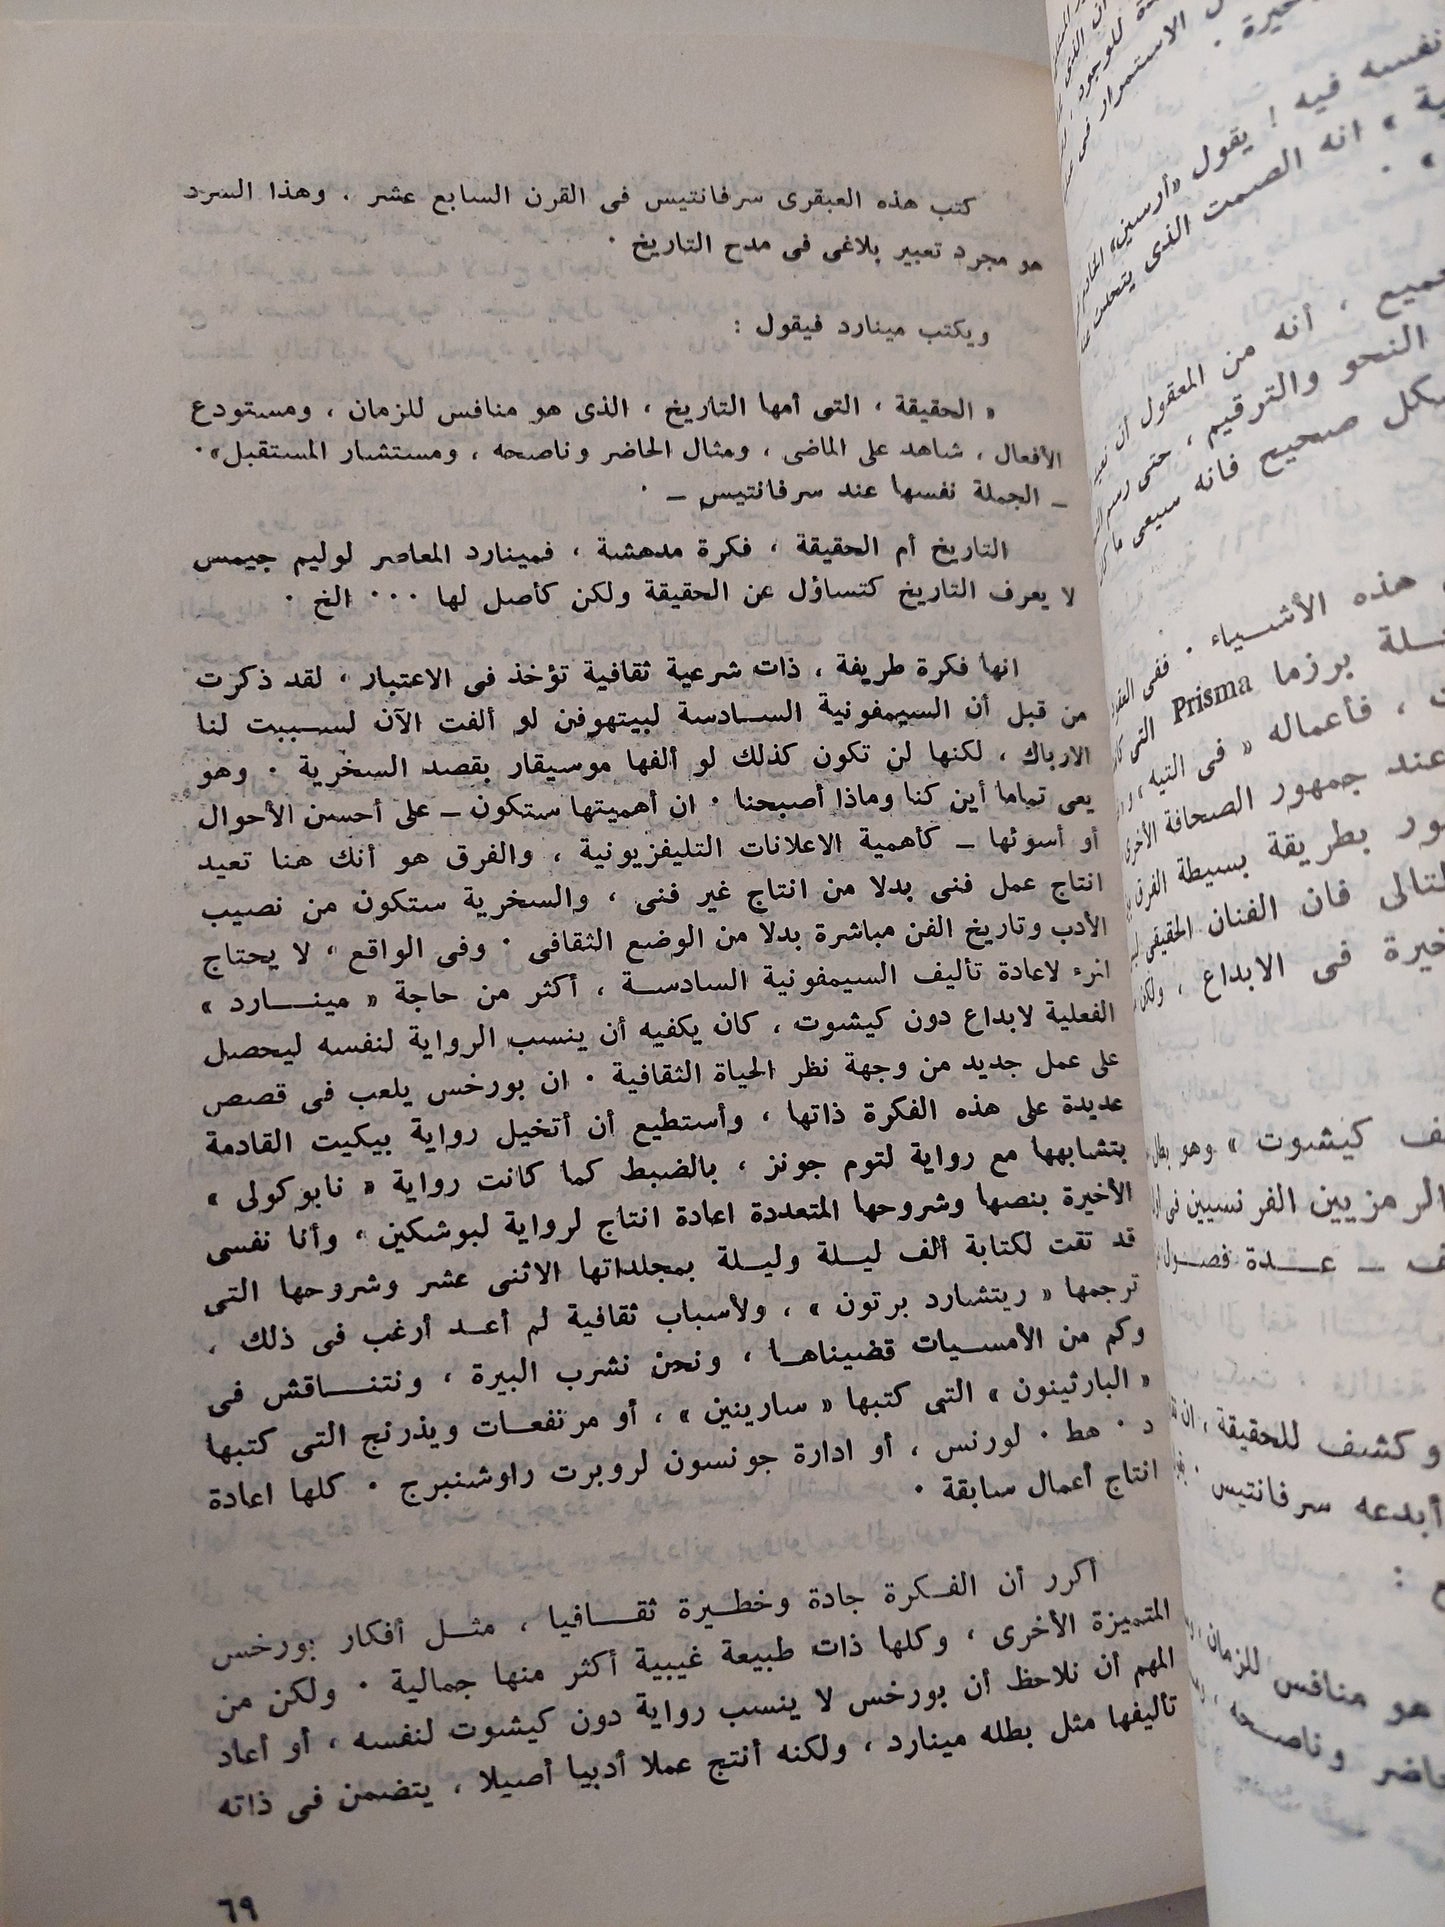 كتب هذه العبقرى سرفانتيس فى القرن السابع عشر ، وهذا السرد
هو مجرد تعبير بلاغى فى مدح التاريخ ٠
ويكتب مينارد فيقول :
« الحقيقة ، التى أمها التاريخ ، الذى هو منافس للزمان ، ومستودع
الأفعال ، شاهد على الماضى ، ومثال الحاضر وناصحه ، ومستشار المستقبل» ٠
ـ الجملة نفسها عند سرفانتيس ـ ٠
التاريخ أم الحقيقة ، فكرة مدهشة ، فمينارد المعاصر لوليم جيمس
لا يعرف التاريخ كتساؤل عن الحقيقة ولكن كأصل لها ٠٠٠ الخ ٠
انها فكرة طريفة ، ذات شرعية ثقافية تؤخذ فى الاعتبار ، لقد ذكرت
من قبل أن السيمفونية الســادسة لبيتهوفن لو ألفت الآن لســببت لنا
الارباك ، لكنها لن تكون كذلك لو ألفها موسيقار بقصد السخرية ٠ وهو
يعى تماما أين كنا وماذا أصبحنا ٠ ان أهميتها ستكون ـ على أحسن الأحوال
أو أسوئها ـ كأهمية الاعلانات التليفزيونية ، والفرق هو أنك هنا تعيد
انتاج عمل فنى بدلا من انتاج غير فنى ، والسخرية ستكون من نصيب
الأدب وتاريخ الفن مباشرة بدلا من الوضع الثقافى ٠ وفى الواقع ، لا يحتاج
لاعادة تأليف السيمفونية السادســة ، أكثر من حاجة « مينــارد »
الفعلية لابداع دون كيشوت ، كان يكفيه أن ينسب الرواية لنفسه ليحصل
على عمل جديد من وجهة نظر الحياة الثقافية ٠ ان بورخس يلعب فى قصص
عديدة على هذه الفكرة ذاتها ، وأستطيع أن أتخيل رواية بيكيت القادمة
بتشابهها مع رواية لتوم جونز ، بالضبط كما كانت رواية « نابوكولى »
الأخيرة بنصها وشروحها المتعددة اعادة انتاج لرواية لبوشكين ، وأنا نفسى
قد تقت لكتابة ألف ليــلة وليــلة بمجلداتها الاثنى عشر وشروحها التى
ترجمها « ريتشارد برتون » ، ولأسباب ثقافية لم أعــد أرغب فى ذلك ،
وكم من الأمســيات قضيناهــا ، ونحن نشرب البيرة ، ونتنــاقش فى
« البارثينون » التى كتبها « سارينين » ، أو مرتفعــات ويذرنج التى كتبها
د ٠ هط ٠ لورنس ، أو ادارة جونسون لروبرت راوشنبرج ٠ كلها اعادة
انتاج أعمال سابقة ٠
أكرر أن الفــكرة جادة وخطــيرة ثقــافيا ، مثــل أفكار بورخس
المتميزة الأخرى ، وكلها ذات طبيعة غيبية أكثر منها جمالية ٠ ولكن من
المهم أن نلاحظ أن بورخس لا ينسب رواية دون كيشوت لنفسه ، أو أعاد
تأليفها مثل بطله مينارد ، ولكنه أنتج عملا أدبيا أصيلا ، يتضمن فى ذاته
٦٩
نفسه فيه ! يقول «أرسين»
انه الصمت الذى يتحدث
، أنه من المعقول أن
النحو والترقيم ، حتى
صحيح فانه سيعى
هذه الأشــياء ٠ ففى
برزما Prisma التى
، فأعماله « فى التيه ،
عند جمهور الصحافة الأخرى
بطريقة بسيطة الفرق
فان الفنان الحقيقى
فى الابداع ، ولكن
كيشوت » وهو بطل
الرمزيين الفرنسيين فى
ـ عــدة فصــول
وكشف للحقيقة ، ان
أبدعه سرفانتيس ٠
هو منافس للزمان ،
وناصــحه ،